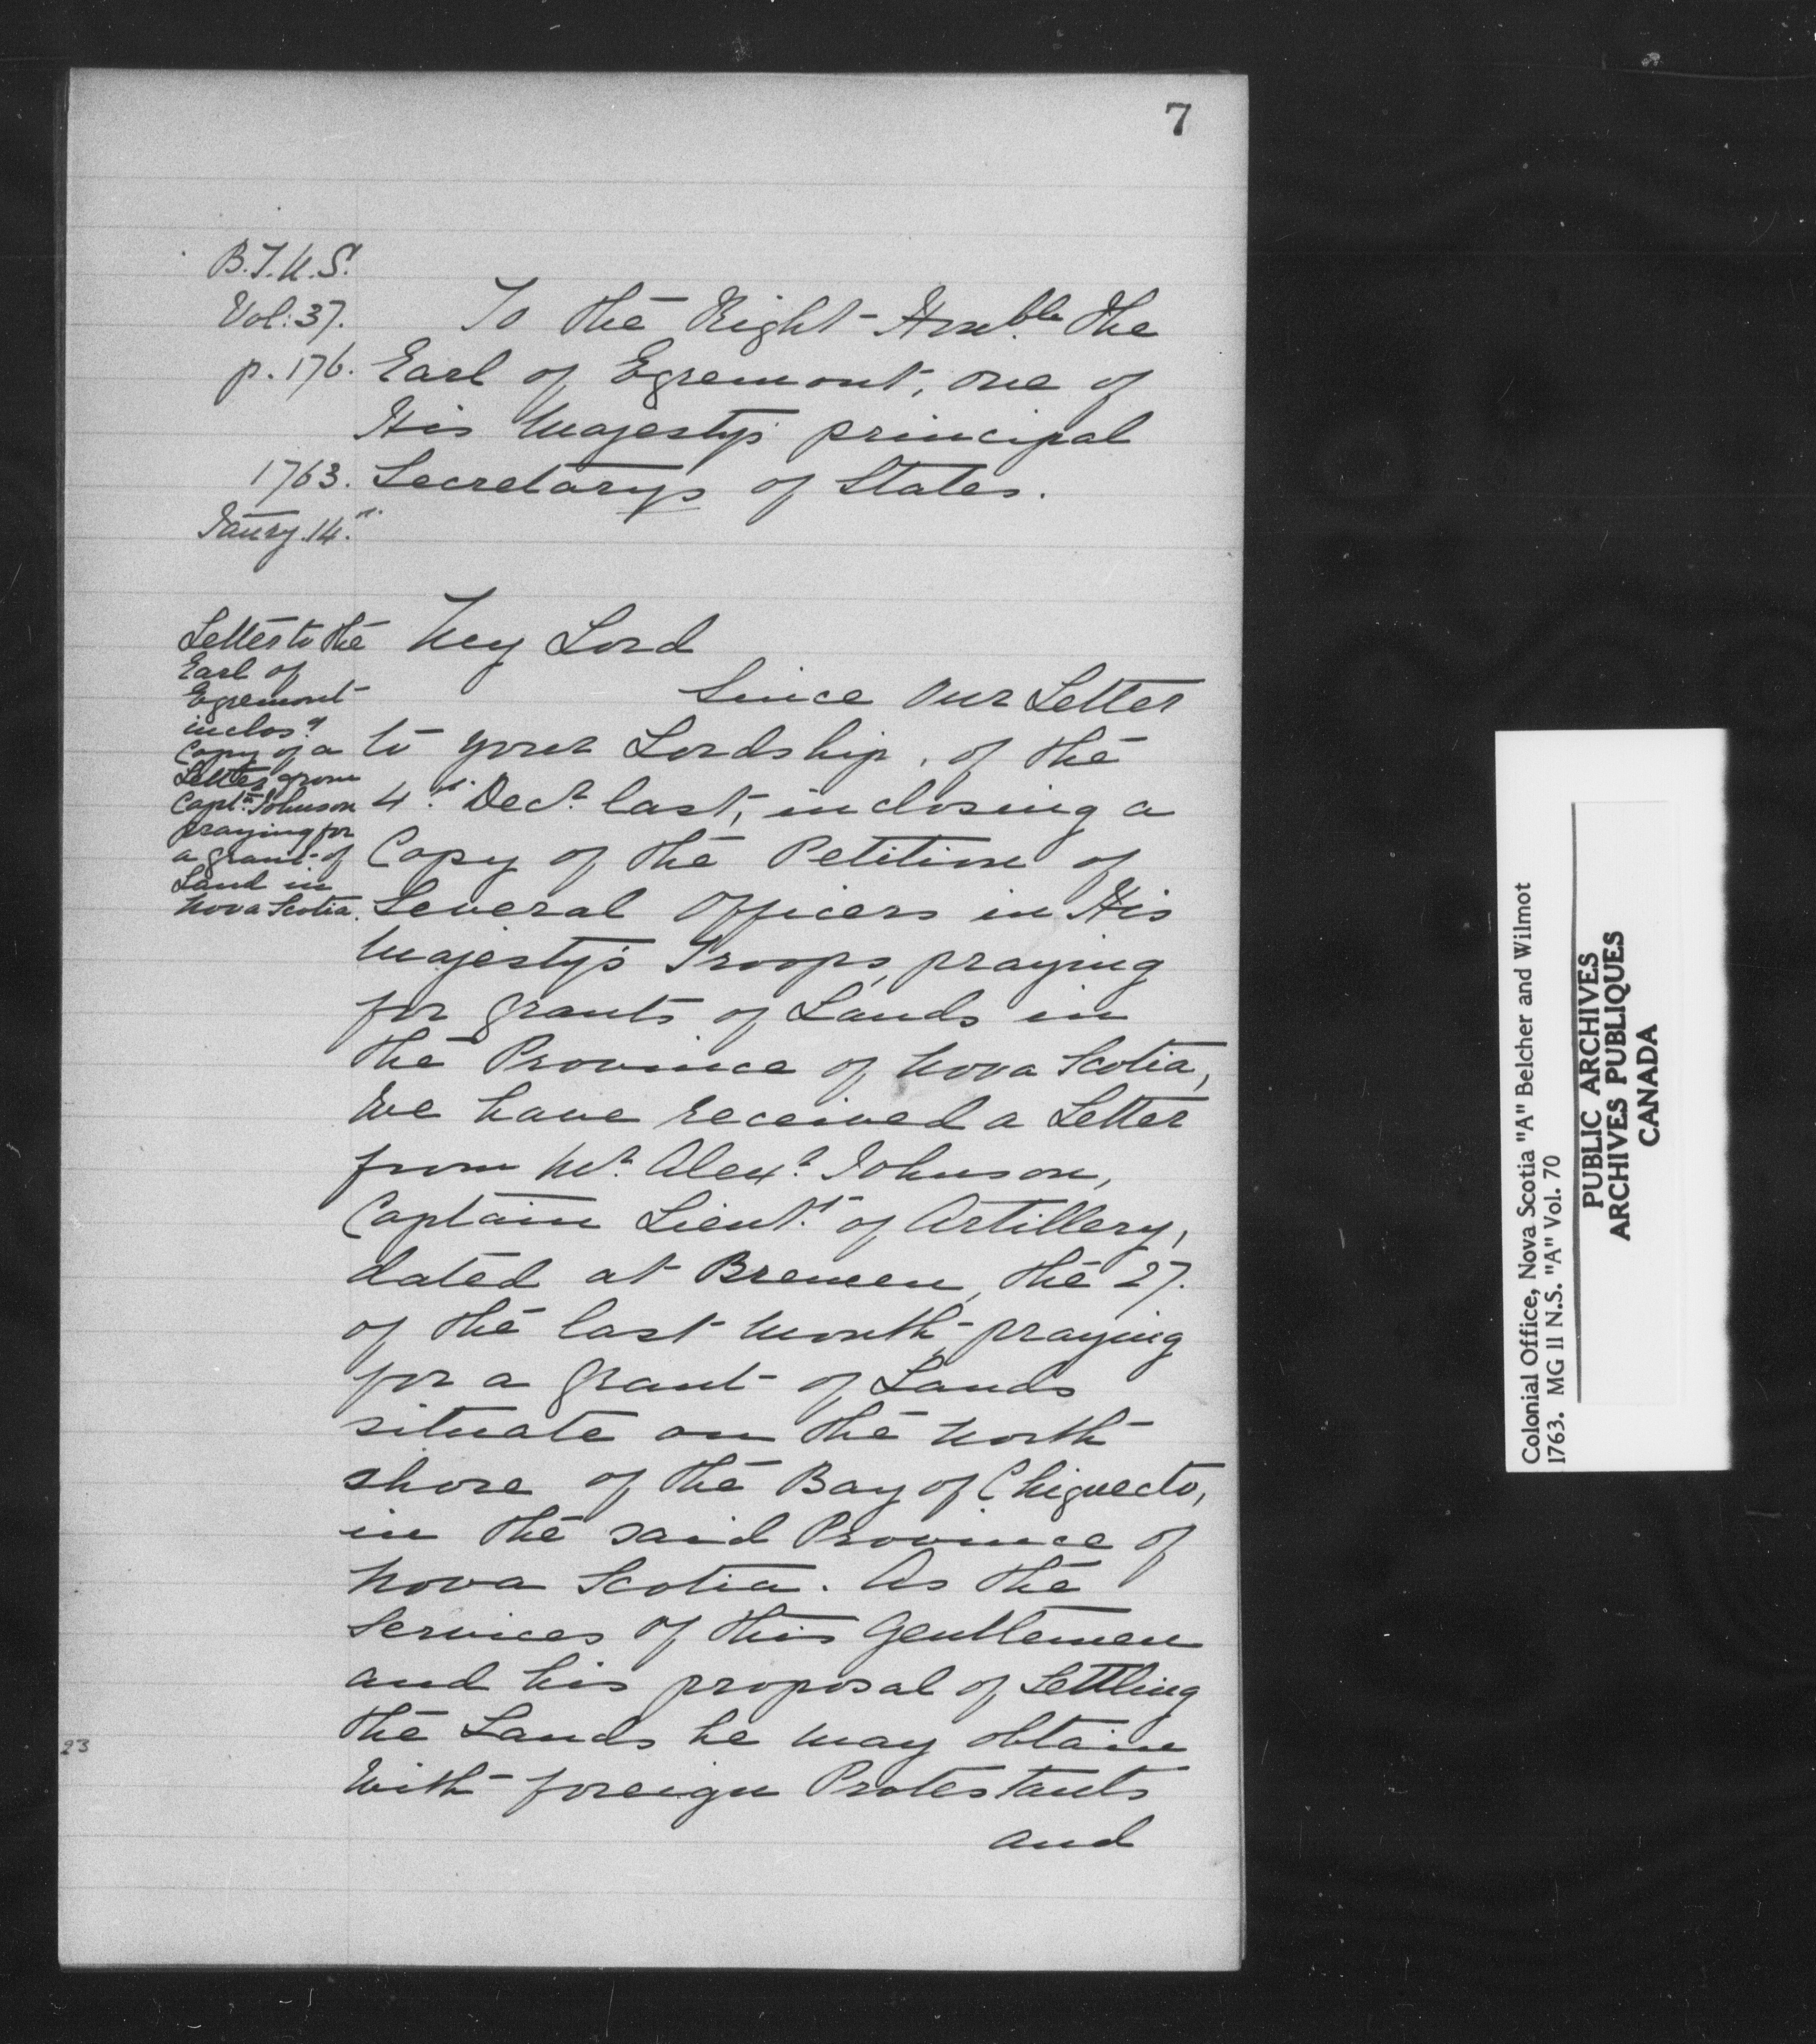 7
B.T.N.S.
Vol: 37.
p. 176.
1763.
Janry. 14th.
To the Right Honble. the
Earl of Egremont, one of
His Majesty's principal
Secretarys of States.
Letter to the
Earl of
Egremont
inclosg
Copy of a
Letter from
Captn. Johnson
praying for
a grant of
Land in
Nova Scotia.
My Lord
Since our Letter
to your Lordship, of the
4th. Decr. last, inclosing a
Copy of the Petition of
Several Officers in His
Majesty's Troops, praying
for grants of Lands in
the Province of Nova Scotia,
We have received a Letter
from Mr. Alexr. Johnson,
Captain Lieutt. of Artillery,
dated at Bremen, the 27.
of the last Month praying
for a grant of Lands
situate on the North
shore of the Bay of Chignecto,
in the said Province of
Nova Scotia. As the
Services of this Gentlemen
and his proposal of Settling
the Lands he may obtain
With foreign Protestants
and
23
Colonial Office, Nova Scotia "A" Belcher and Wilmot
1763. MG II N.S. "A" Vol. 70
PUBLIC ARCHIVES
ARCHIVES PUBLIQUES
CANADA